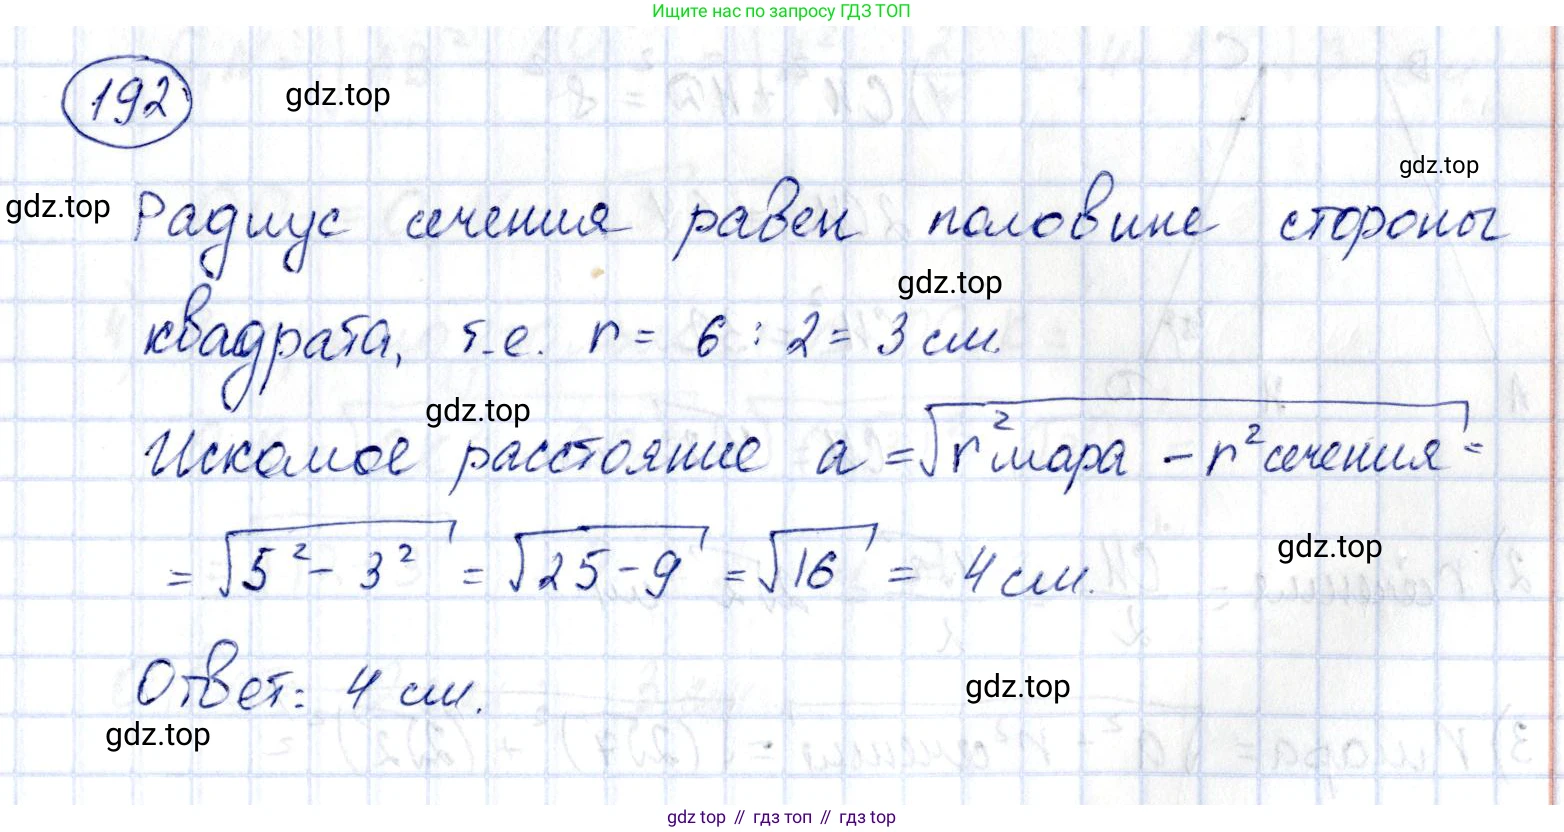 Ищите нас по запросу ГДЗ ТОП
192
gdz.top
gdz.top
gdz.top
Радиус сечения равен половине стороны
gdz.top
квадрата, т.е. r = 6 : 2 = 3 см.
gdz.top
Искомое расстояние a = √(r² шара - r² сечения) =
= √(5² - 3²) = √(25 - 9) = √16 = 4 см.
gdz.top
Ответ: 4 см.
gdz.top
gdz.top
gdz top // гдз топ // гдз top